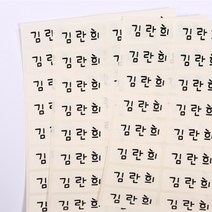 김란희 김란희 김란희
김란희 김란희 김란희
김란희 김란희 김란희
김란희 김란희 김란희
김란희 김란희 김란희
김란희 김란희 김란희
김란희 김란희 김란희
김란희 김란희 김란희
김란희 김란희 김란희